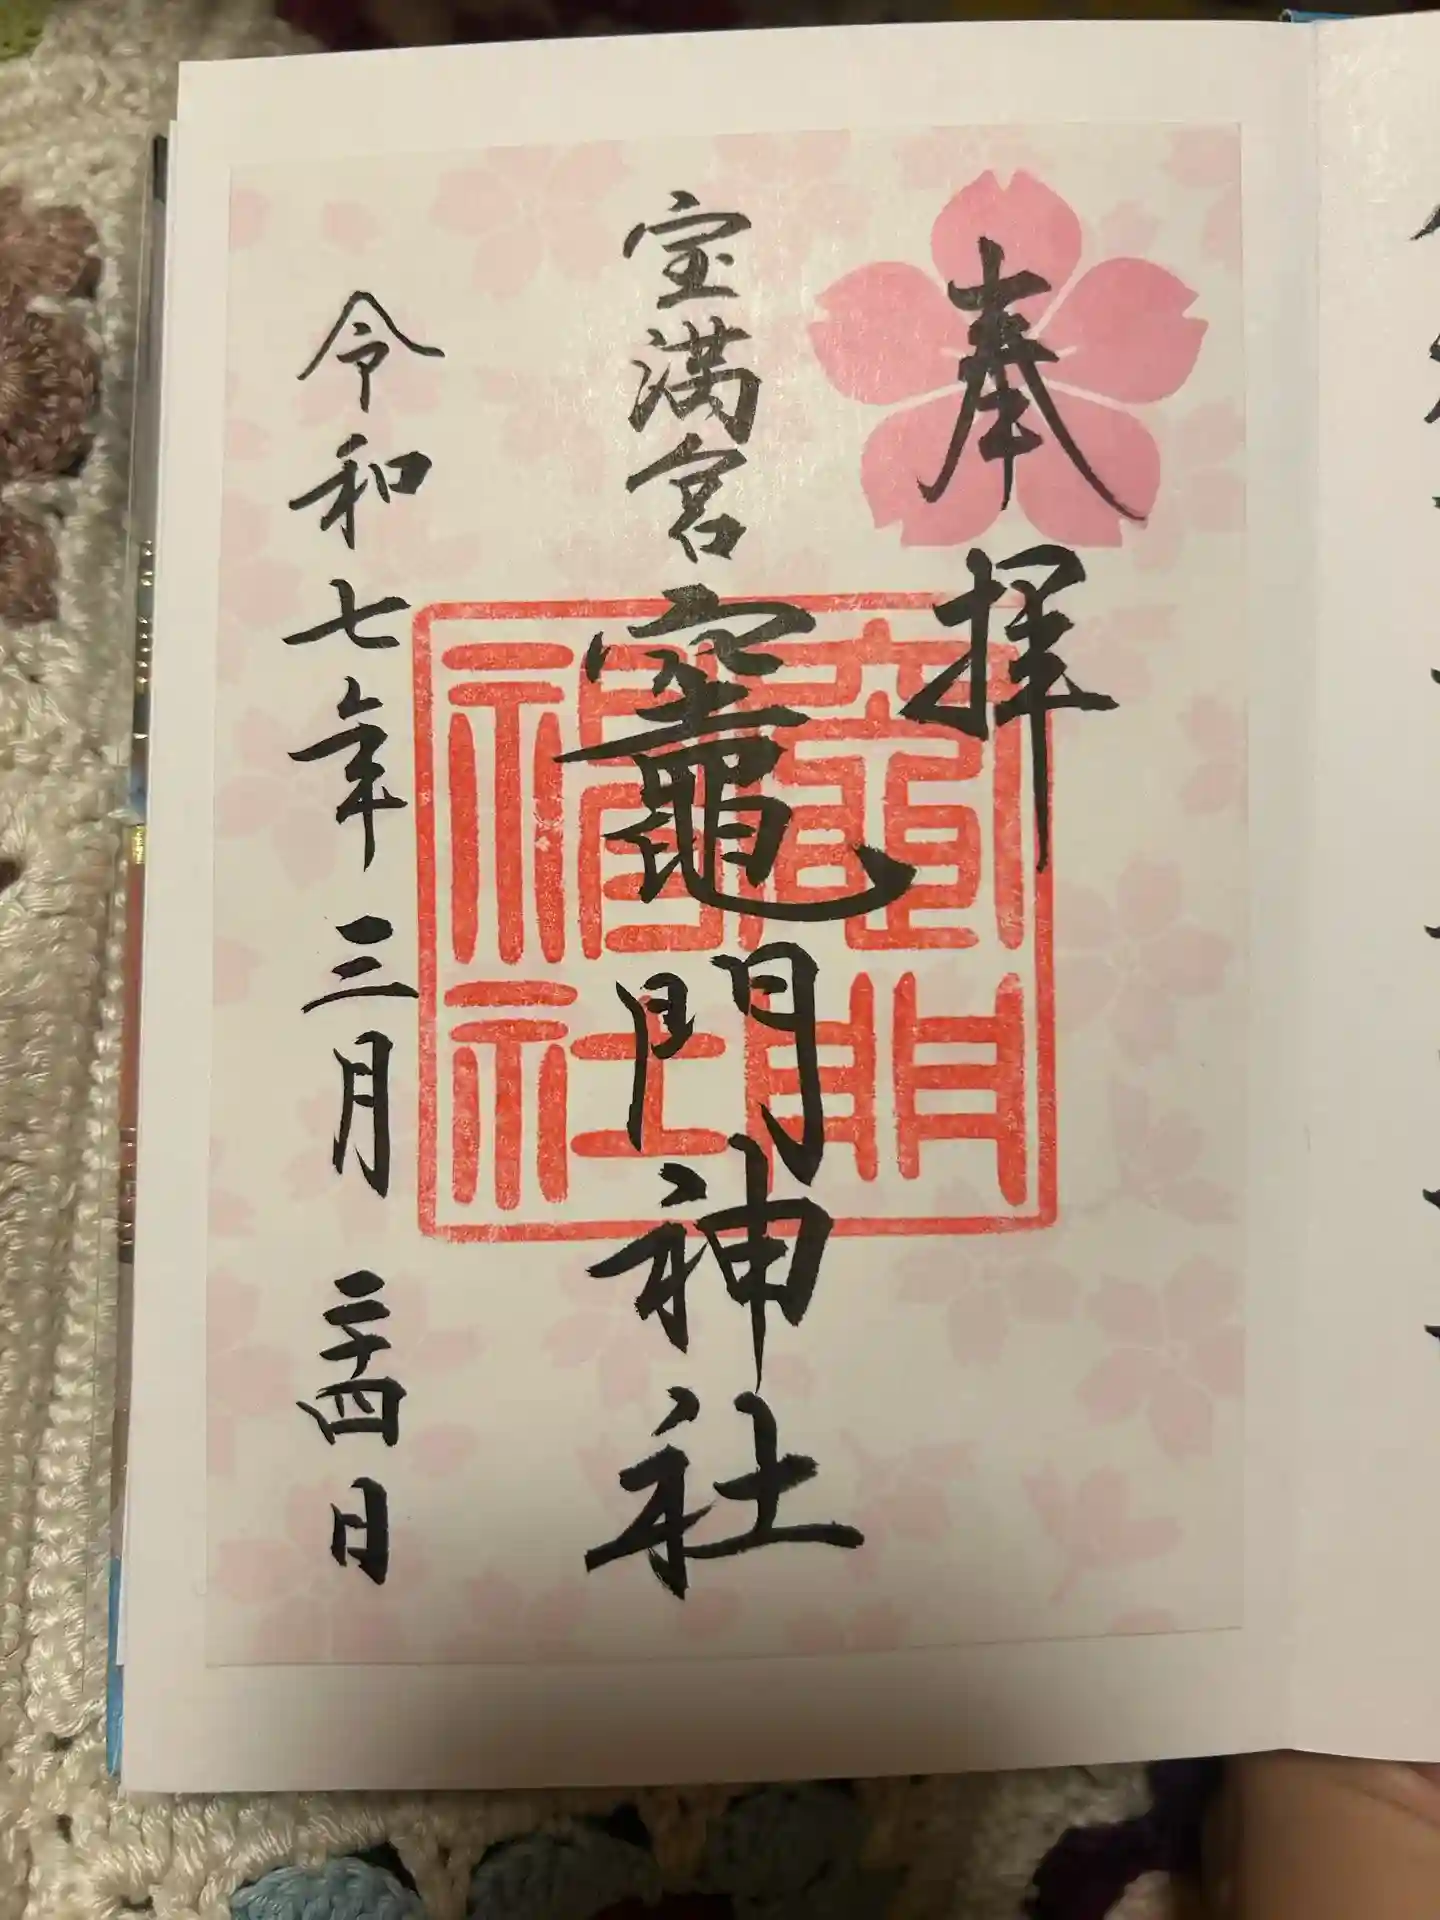 奉拝
宝満宮竈門神社
令和七年三月二十四日
竈門
神社